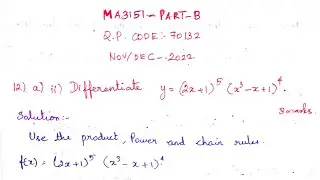 MA3151 - PART-B
Q.P. CODE:- 70132
NOV/DEC-2022
12) a) ii) Differentiate y = (2x+1)⁵ (x³-x+1)⁴.
8 marks.
Solution:-
Use the product, Power and chain rules.
f(x) = (2x+1)⁵ (x³-x+1)⁴